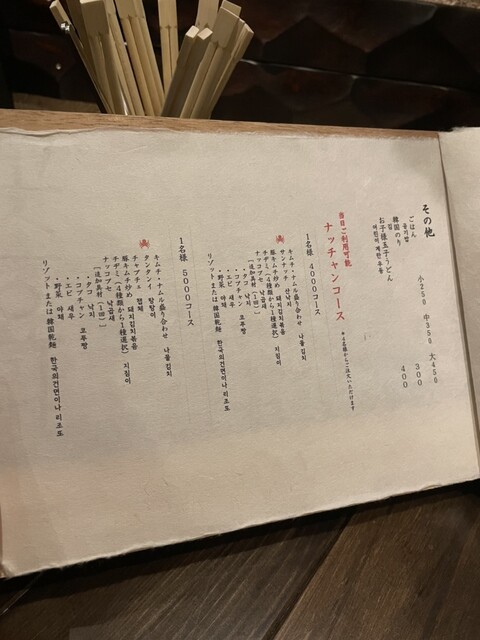 その他
ごはん 小250 中350 大450
공기밥
韓国のり 300
김
お子様玉子うどん 400
어린이 계란 우동
当日ご利用可能
ナッチャンコース
※4名様からご注文いただけます
1名様 4000コース
キムチ・ナムル盛り合わせ 나물김치
サンナッチ 산낙지
豚キムチ炒め 돼지김치볶음
チヂミ(4種類から1種選択) 지짐이
ナッコプセ 낙곱새
[追加具材(1回)]
・タコ 낙지
・コプチャン 곱창
・エビ 새우
・野菜 야채
リゾットまたは韓国乾麺 한국의건면이나리조또
1名様 5000コース
キムチ・ナムル盛り合わせ 나물김치
タンタンイ 탕탕이
チャプチェ 잡채
豚キムチ炒め 돼지김치볶음
チヂミ(4種類から1種選択) 지짐이
ナッコプセ 낙곱새
[追加具材(1回)]
・タコ 낙지
・コプチャン
・エビ 새우
・野菜 야채
リゾットまたは韓国乾麺 한국의건면이나리조또